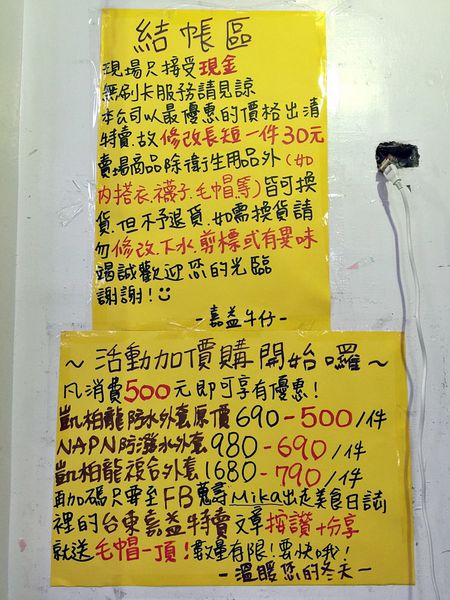 結帳區
現場只接受現金
無刷卡服務請見諒
本公司以最優惠的價格出清
特賣.故修改長短一件30元
賣場商品除衛生用品外(如
內搭衣.襪子.毛帽.等)皆可換
貨.但不予退貨.如需換貨請
勿修改.下水.剪標或有異味
竭誠歡迎您的光臨
謝謝!
-嘉益牛仔-
~活動加價購開始囉~
凡消費500元即可享有優惠!
凱柏龍防水外套原價690-500/件
NAPN防潑水外套980-690/件
凱柏龍複合外套1680-790/件
再加碼只需至FB蒐尋Mika出走美食日誌
裡的台東嘉益特賣文章按讚+分享
就送毛帽一頂!數量有限!要快哦!
-溫暖您的冬天-